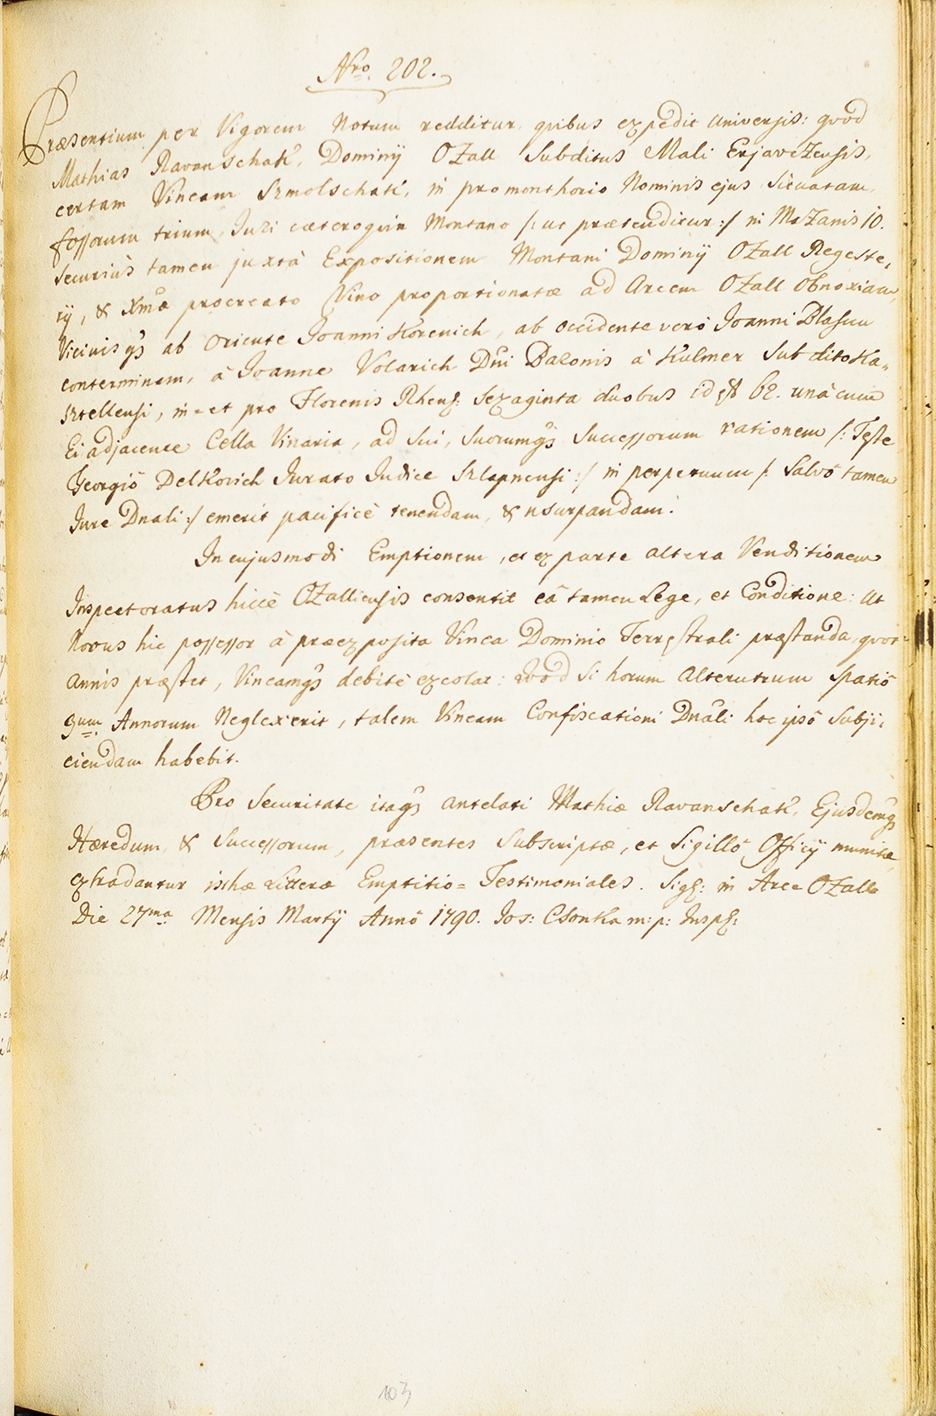 Nro. 202.
Præsentium per Vigorem Notum redditur quibus expedit Universis: quod
Mathias Ravanschak, Dominij Ozall Subditus Mali Erjavczensis,
certam Vineam Szmolschak, in promonthorio Nominis ejus situatam,
fossorum trium, Juri cæteroquin Montano /: ut prætenditur :/ in Mazanis 10.
Securius tamen juxtà Expositionem Montani Dominij Ozall Regeste,
ij, & Xmæ procreato Vino proportionatæ ad Arcem Ozall obnoxiam,
Vicinisqs ab oriente Joanni Horenich, ab occidente verò Joanni Blasun
conterminam, à Joanne Volarich Dni Baronis à Kulmer Subdito Ka,,
sztellensi, in = et pro Florenis Rhens: Sexaginta duobus id est 62. unà cum
Ei adjacente Cella Vinaria, ad Sui, Suorumqs Successorum rationem /: Teste
Georgiô Delkovich Jurato Judice Szlapnensi :/ in perpetuum /: Salvô tamen
Jure Dnali :/ emerit pacificè tenendam, & usurpandam.
In cujusmodi Emptionem, et ex parte altera Venditionem
Inspectoratus hiccè Ozalliensis consentit eâ tamen Lege, et Conditione: Ut
Novus hic possessor à præexposita Vinea Dominio Terrestrali præstanda, quot
annis præstet, Vineamqs debitè excolat: Quod si horum alterutrum Spatiô
3um Annorum Neglexerit, talem Vineam Confiscationi Dnali hoc ipsô Subji:
ciendam habebit.
Pro Securitate itaqs antelati Mathiæ Ravanschak, Ejusdemqs
Hæredum, & Successorum, præsentes Subscriptæ, et Sigillô Officij munitæ,
extradantur isthæ Litteræ Emptitio = Testimoniales. Sigs: in Arce Ozall
Die 27ma Mensis Martij Annô 1790. Jos: Csonka m:p: Insps:
103